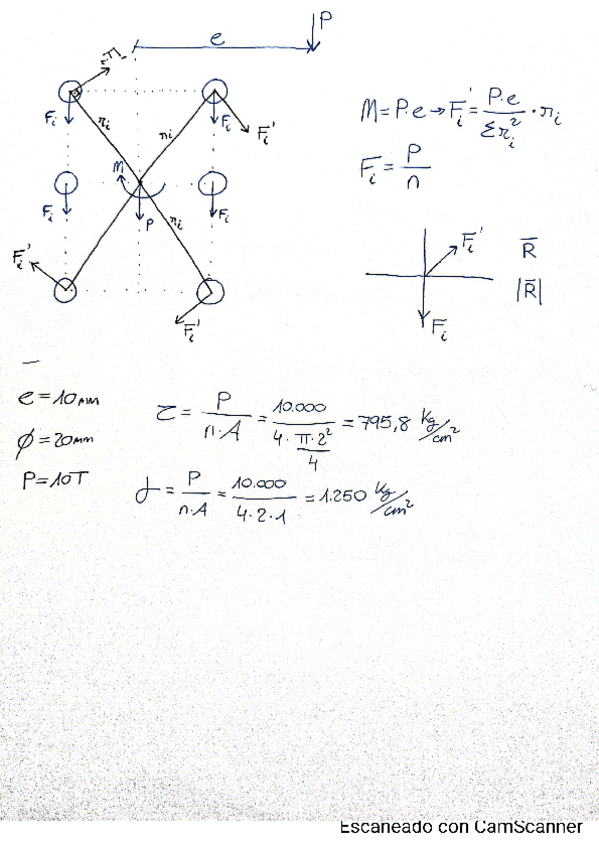 e
P
Fi'
Fi
ri
ri
Fi
Fi'
M
Fi
P
ri
Fi
Fi'
Fi'
M = P·e → Fi' = P·e / Σri² · ri
Fi = P / n
Fi'
R̅
|R̅|
Fi
e = 10 mm
ϕ = 20 mm
P = 10T
τ = P / n·A = 10.000 / 4 · π·2² / 4 = 795,8 Kg/cm²
σ = P / n·A = 10.000 / 4·2·1 = 1.250 Kg/cm²
Escaneado con CamScanner